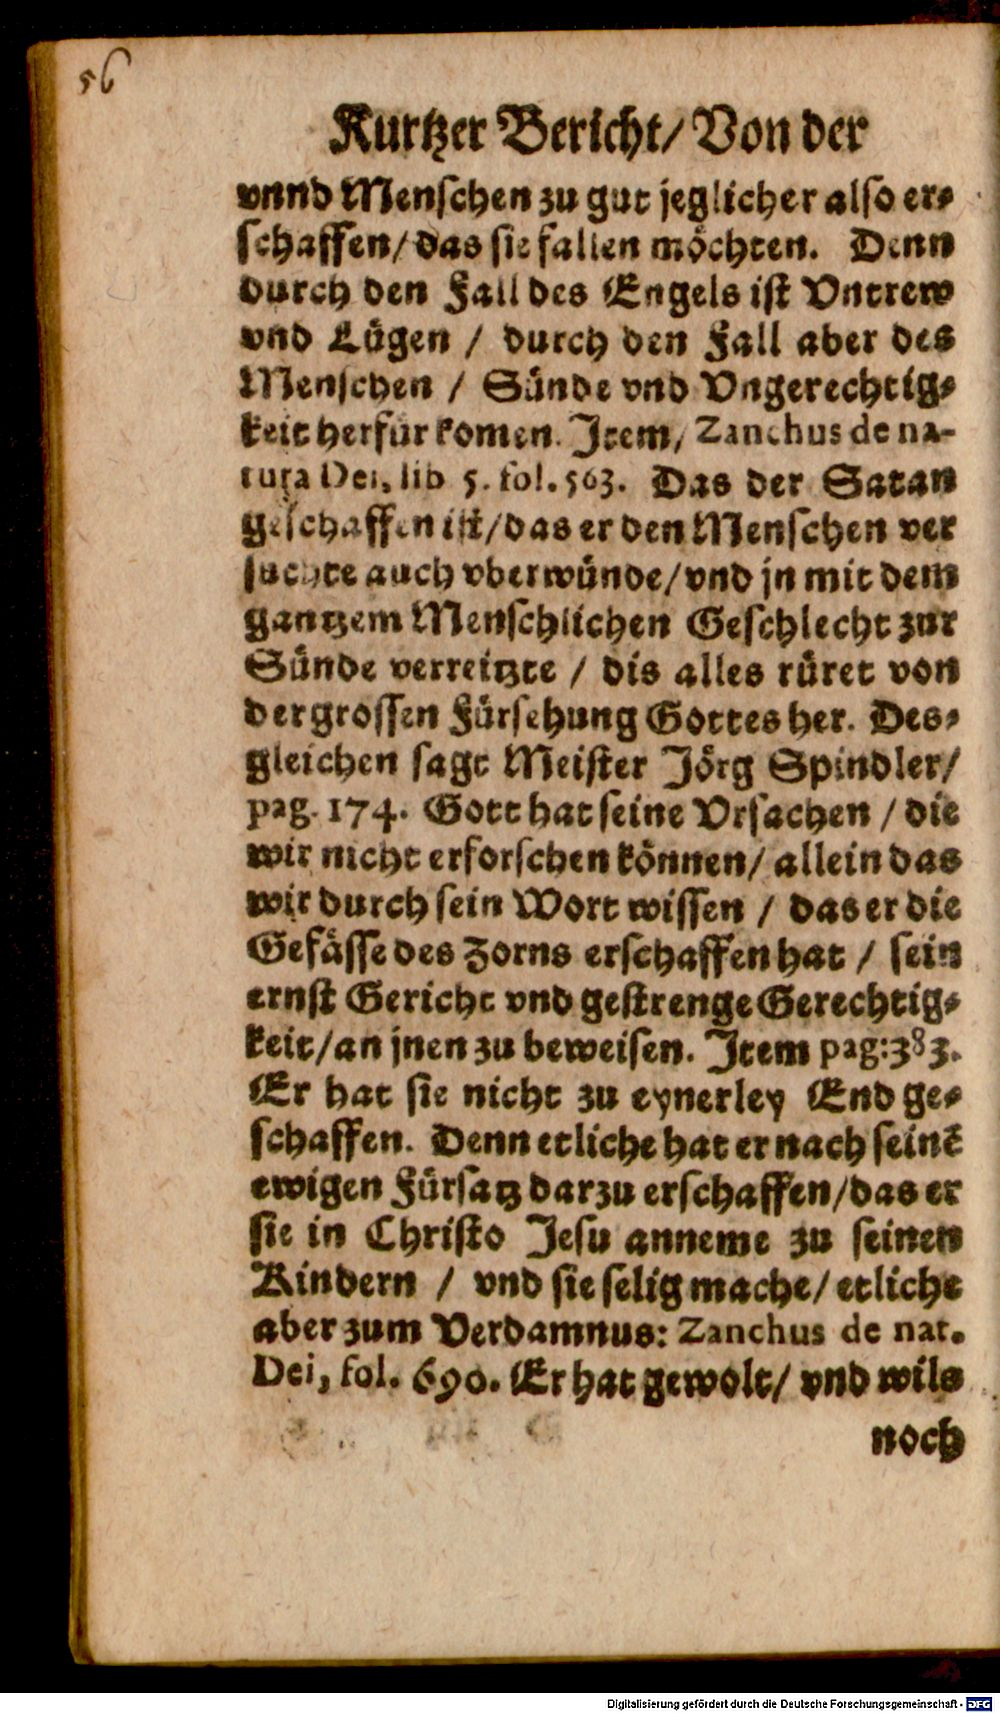 56
Kurtzer Bericht/ Von der
vnnd Menschen zu gut jeglicher also er⸗
schaffen/ das sie fallen möchten. Denn
durch den Fall des Engels ist Vntrew
vnd Lügen / durch den Fall aber des
Menschen / Sünde vnd Vngerechtig⸗
keit herfür komen. Item, Zanchus de na-
tura Dei, lib 5. fol. 563. Das der Satan
geschaffen ist/ das er den Menschen ver
suchte auch vberwünde/ vnd jn mit dem
gantzem Menschlichen Geschlecht zur
Sünde verreitzte / dis alles rüret von
der grossen Fürsehung Gottes her. Des⸗
gleichen sagt Meister Jörg Spindler/
pag. 174. Gott hat seine Vrsachen / die
wir nicht erforschen können/ allein das
wir durch sein Wort wissen / das er die
Gefässe des Zorns erschaffen hat / sein
ernst Gericht vnd gestrenge Gerechtig⸗
keit/ an jnen zu beweisen. Item pag: 383.
Er hat sie nicht zu eynerley End ge⸗
schaffen. Denn etliche hat er nach seinē
ewigen Fürsatz darzu erschaffen/ das er
sie in Christo Jesu anneme zu seinen
Kindern / vnd sie selig mache/ etliche
aber zum Verdamnus: Zanchus de nat.
Dei, fol. 690. Er hat gewolt/ vnd wils
noch
Digitalisierung gefördert durch die Deutsche Forschungsgemeinschaft - DFG